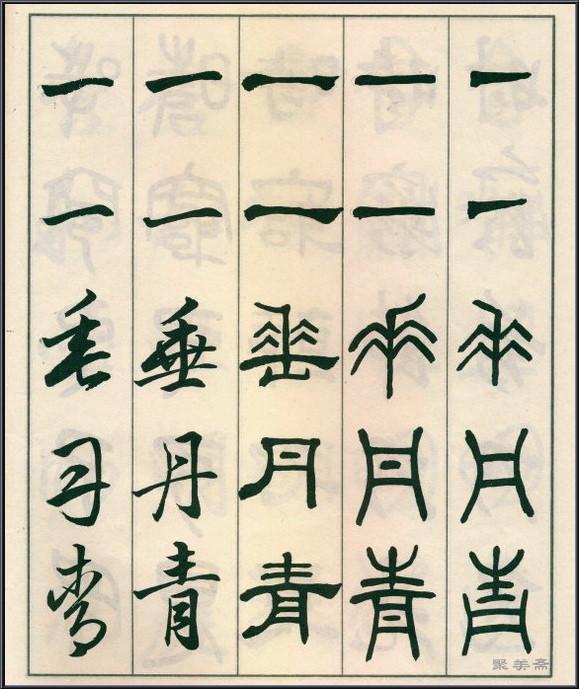 一一垂丹青
一一垂丹青
一一垂丹青
一一垂丹青
一一垂丹青
聚美斋